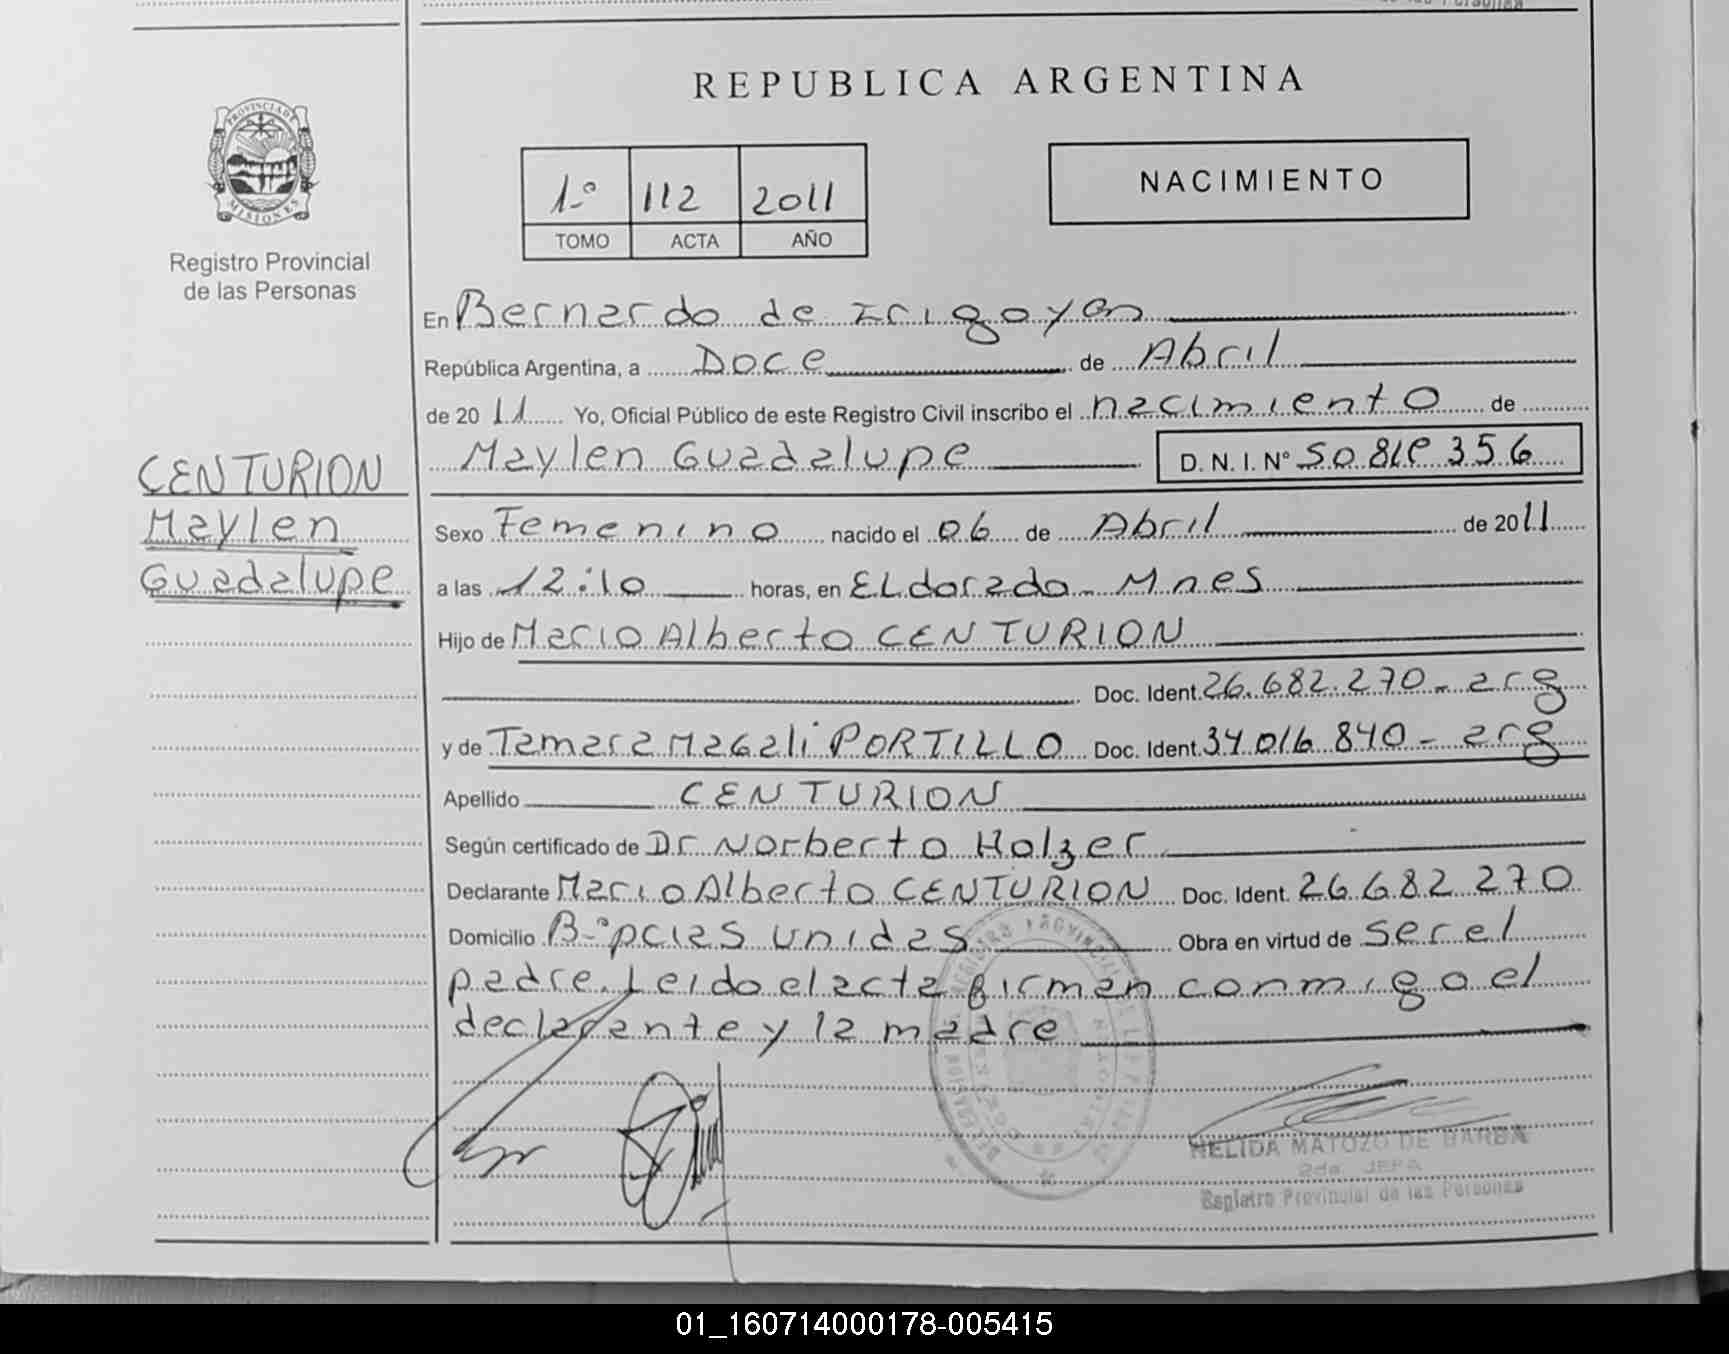 REPUBLICA ARGENTINA
PROVINCIA DE MISIONES
Registro Provincial
de las Personas
1º 112 2011
TOMO ACTA AÑO
NACIMIENTO
En Bernardo de Irigoyen
República Argentina, a Doce de Abril
de 2011 Yo, Oficial Público de este Registro Civil inscribo el nacimiento de
Maylen Guadalupe D.N.I.Nº
CENTURION
Maylen
Guadalupe
Sexo Femenino nacido el 06 de Abril de 2011
a las 12:10 horas, en ELdorado - Mnes
Hijo de Mario Alberto CENTURION
Doc. Ident. 26.682.270 - arg
y de Tamara Magali PORTILLO Doc. Ident. 34 016 840 - arg
Apellido CENTURION
Según certificado de Dr Norberto Holzer
Declarante Mario Alberto CENTURION Doc. Ident. 26.682 270
Domicilio B-º pcias unidas Obra en virtud de ser el
padre. Leido el acta firman conmigo el
declarante y la madre
NELIDA MATOZO DE BARBA
2da. JEFA
Registro Provincial de las Personas
01_160714000178-005415